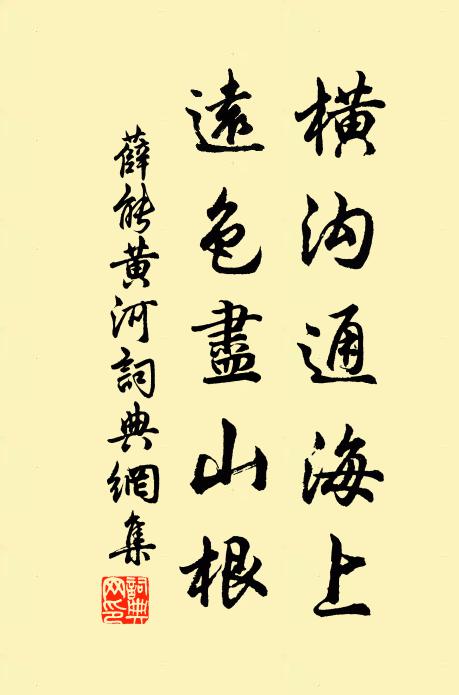 橫沟通海上
遠色盡山根
薛能黄河詞典網集
詞典网印